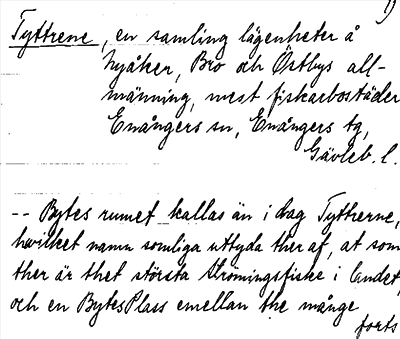 Tyttrene, en samling lägenheter å
Nyåker, Bro och Östbys all-
männing, mest fiskarbostäder
Enångers sn, Enångers tg,
Gävleb. l.
-- Bytes rumet kallas än i dag Tyttrerne,
hwilket namn somliga uttyda ther af, at som
ther är thet största Strömingsfiske i landet,
och en BytesPlass emellan the månge
forts